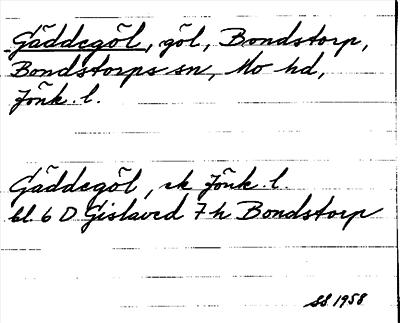 Gäddegöl, göl, Bondstorp,
Bondstorps sn, Mo hd,
Jönk. l.
Gäddegöl, ek Jönk. l.
bl. 6 D Gislaved 7 h Bondstorp
SS 1958